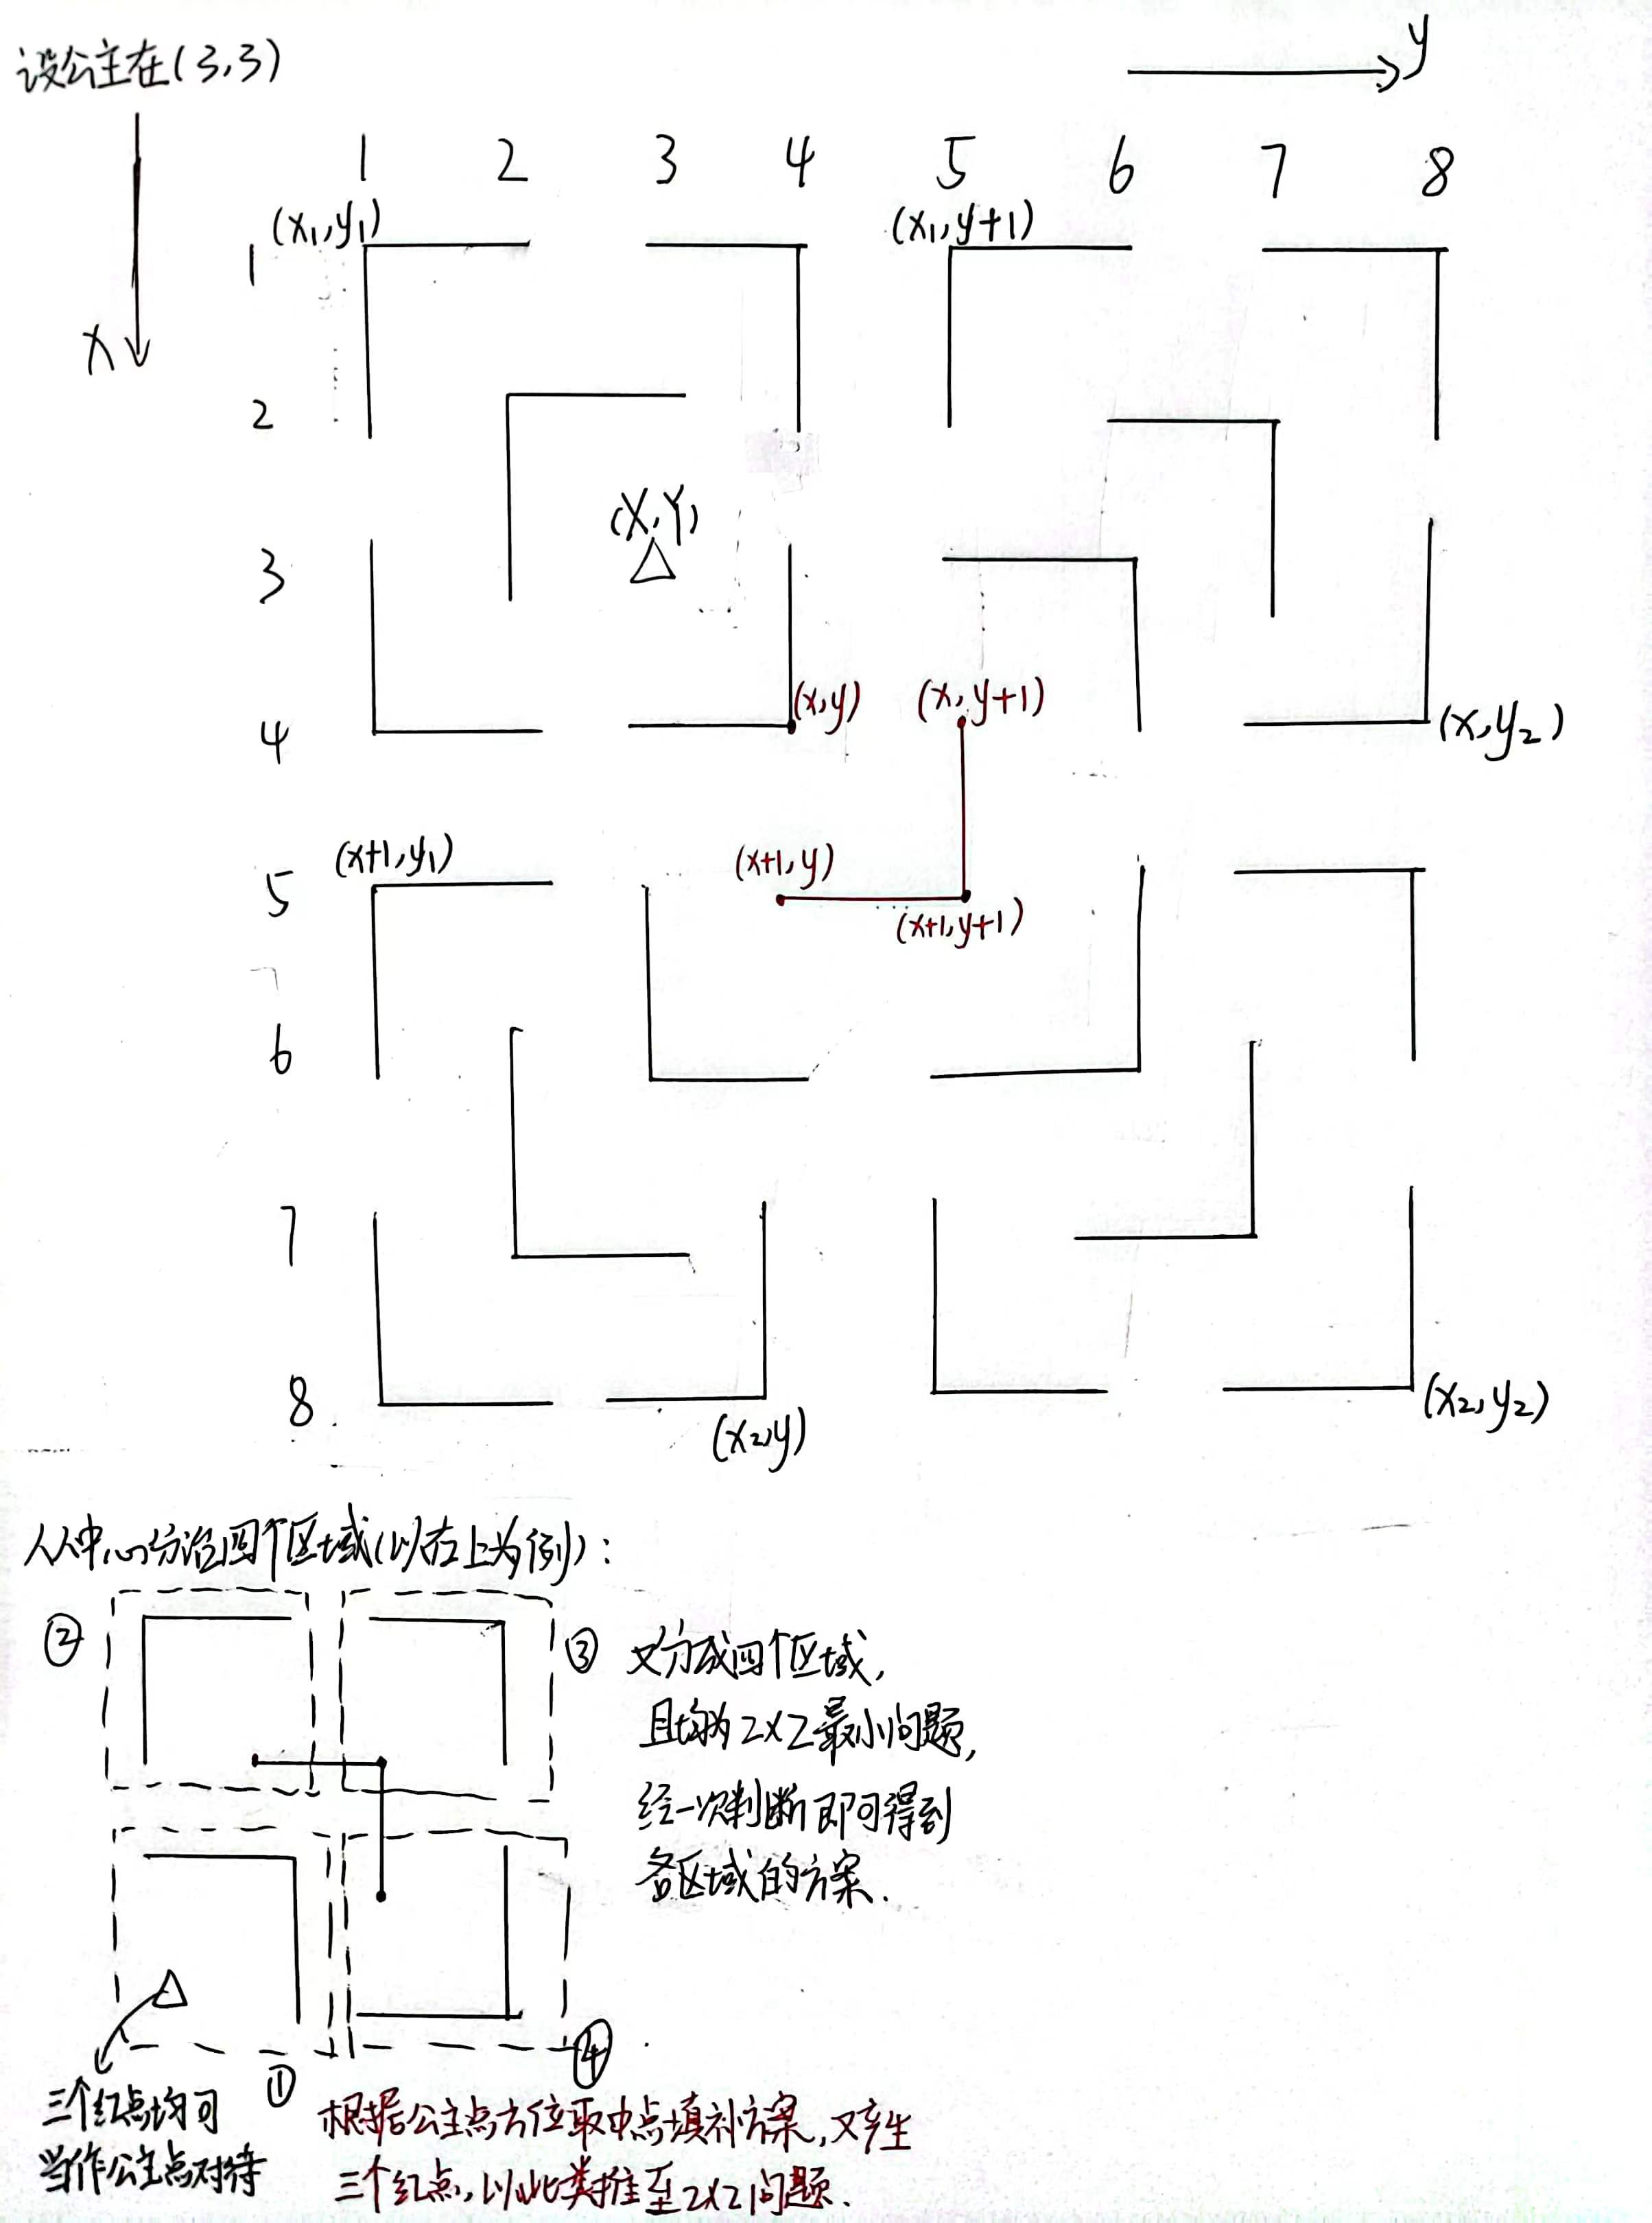 设公主在(3,3)
y
x
1 2 3 4 5 6 7 8
(x1,y1)
(x1,y+1)
1
2
(X,Y)
3
(x,y)
(x,y+1)
4
(x,y2)
(x+1,y1)
(x+1,y)
5
(x+1,y+1)
6
7
8
(x2,y)
(x2,y2)
从中心分治四个区域(以右上为例):
②
③
又分成四个区域,
且均为2x2最小问题,
经一次判断即可得到
各区域的方案.
①
④
三个红点均可
当作公主点对待
根据公主点方位取中点填补方案,又产生
三个红点,以此类推至2x2问题.